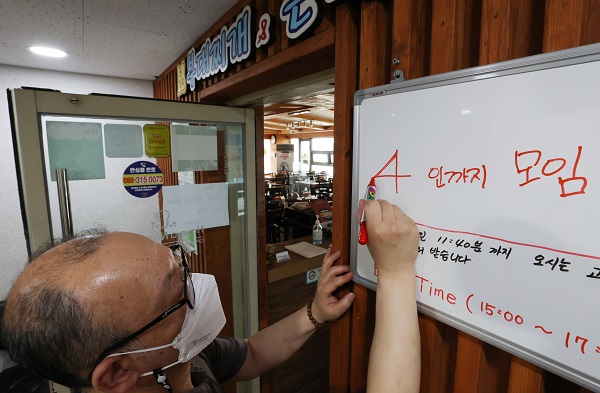 부대찌개 &
안심콜 번호
080-315-0073
4 인까지 모임
11:40분 까지 오시는
받습니다
Time (15:00 ~ 17: